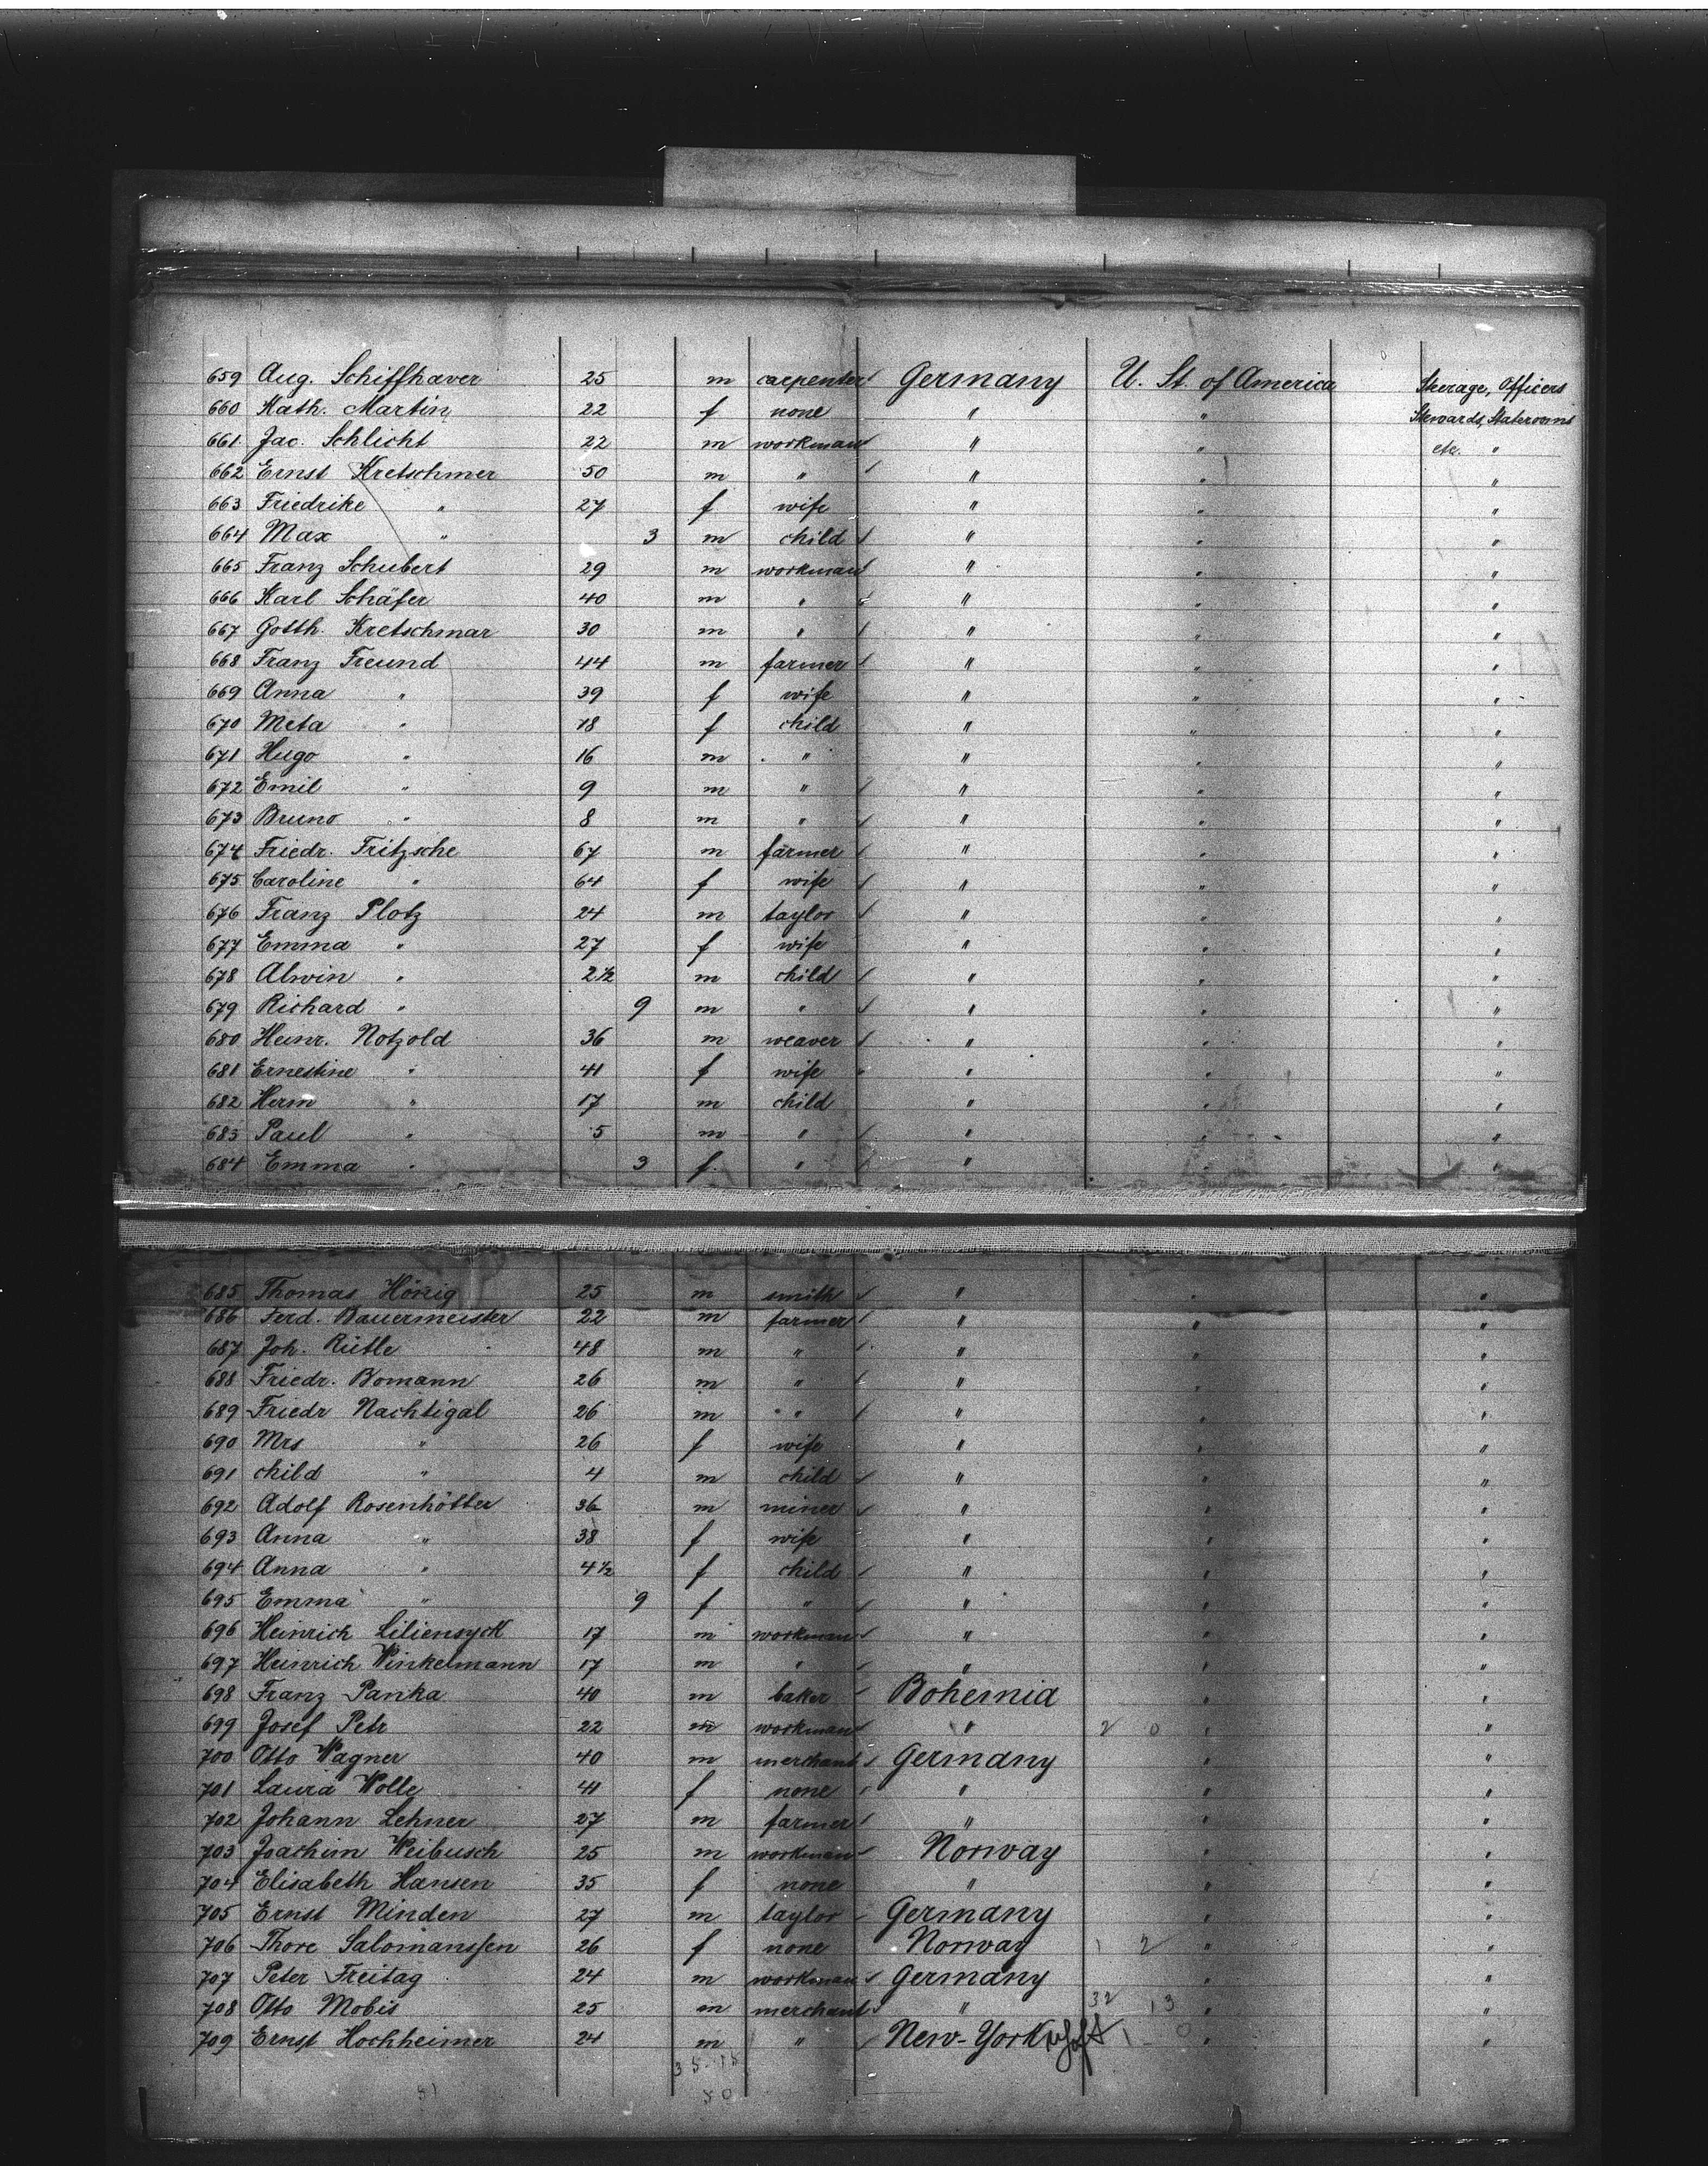 659 Aug. Schiffhaver 25 m carpenter Germany U. St. of America Sterage, Officers
660 Kath. Martin 22 f none " " Stewards, Staterooms
661 Jac. Schlicht 22 m workman " " etc. "
662 Ernst Kretschmer 50 m " " " "
663 Friedrike " 27 f wife " " "
664 Max " 3 m child " " "
665 Franz Schubert 29 m workman " " "
666 Karl Schäfer 40 m " " " "
667 Gotth. Kretschmar 30 m " " " "
668 Franz Freund 44 m farmer " " "
669 Anna " 39 f wife " " "
670 Meta " 18 f child " " "
671 Hugo " 16 m " " " "
672 Emil " 9 m " " " "
673 Bruno " 8 m " " " "
674 Friedr. Fritzsche 67 m farmer " " "
675 Caroline " 64 f wife " " "
676 Franz Plotz 24 m taylor " " "
677 Emma " 27 f wife " " "
678 Alwin " 2½ m child " " "
679 Richard " 9 m " " " "
680 Heinr. Notzold 36 m weaver " " "
681 Ernestine " 41 f wife " " "
682 Herm " 17 m child " " "
683 Paul " 5 m " " " "
684 Emma " 3 f " " " "
685 Thomas 25 m smith " " "
686 Ferd. Bauermeister 22 m farmer " " "
687 Joh. Rütle 48 m " " " "
688 Friedr. Bomann 26 m " " " "
689 Friedr Nachtigal 26 m " " " "
690 Mrs " 26 f wife " " "
691 child " 4 m child " " "
692 Adolf Rosenhötter 36 m miner " " "
693 Anna " 38 f wife " " "
694 Anna " 4½ f child " " "
695 Emma " 9 f " " " "
696 Heinrich Liliensyck 17 m workman " " "
697 Heinrich Winkelmann 17 m " " " "
698 Franz Panka 40 m baker Bohemia " "
699 Josef Petr 22 m workman " 2 0 " "
700 Otto Wagner 40 m merchant Germany " "
701 Laura Wolle 41 f none " " "
702 Johann Lehner 27 m farmer " " "
703 Joachim Weibusch 25 m workman Norway " "
704 Elisabeth Hansen 35 f none " " "
705 Ernst Minden 27 m taylor Germany " "
706 Thore Salomanssen 26 f none Norway 1 2 " "
707 Peter Freitag 24 m workman Germany " "
708 Otto Mobis 25 m merchant " 32 13 " "
709 Ernst Hochheimer 24 m " New-York 1 0 " "
35-15
51 50